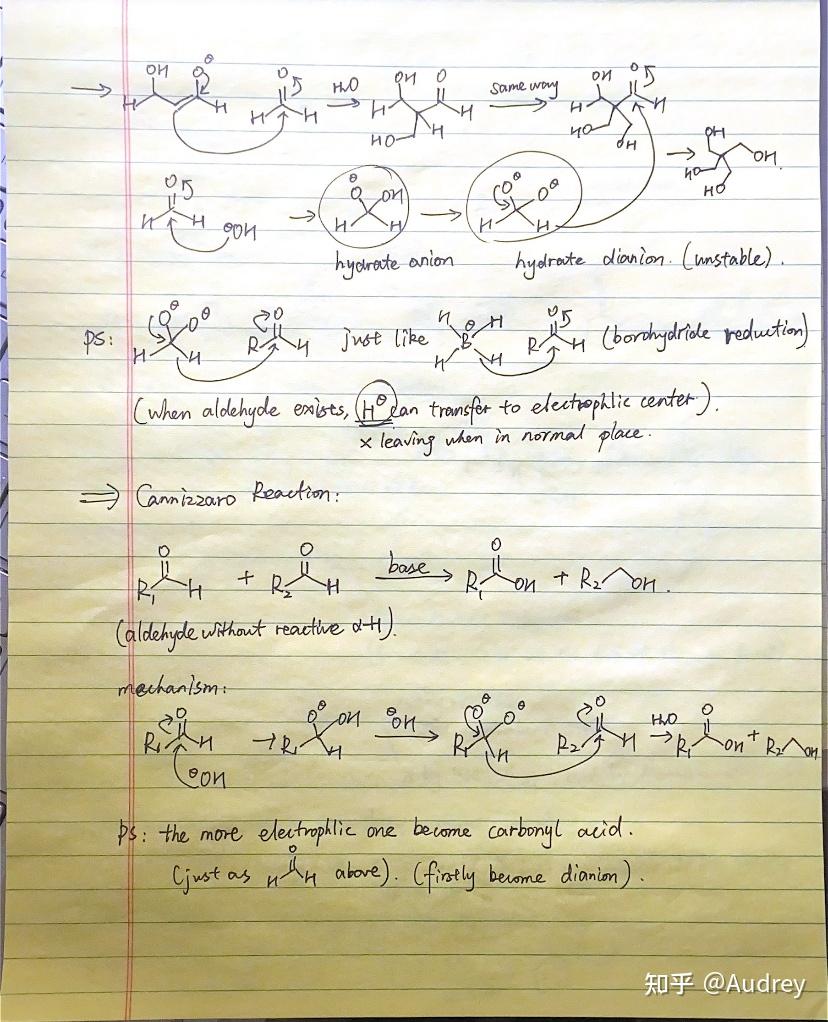 → OH O⊖ H H O H H H2O → OH O H H HO H same way → OH O H H HO OH
→ OH OH HO HO
O H H ⊖OH → ⊖ O OH H H → O⊖ O⊖ H H
hydrate anion hydrate dianion. (unstable).
ps: O⊖ O⊖ H H O R H just like H H ⊖ B H H O R H (borohydride reduction)
(when aldehyde exists, H⊖ can transfer to electrophlic center).
× leaving when in normal place.
⇒ Cannizzaro Reaction:
O R1 H + O R2 H base → O R1 OH + R2 OH.
(aldehyde without reactive α-H).
mechanism:
O R1 H ⊖OH → O⊖ OH R1 H ⊖OH → O⊖ O⊖ R1 H O R2 H H2O → O R1 OH + R2 OH
ps: the more electrophlic one become carbonyl acid.
(just as O H H above). (firstly become dianion).
知乎 @Audrey